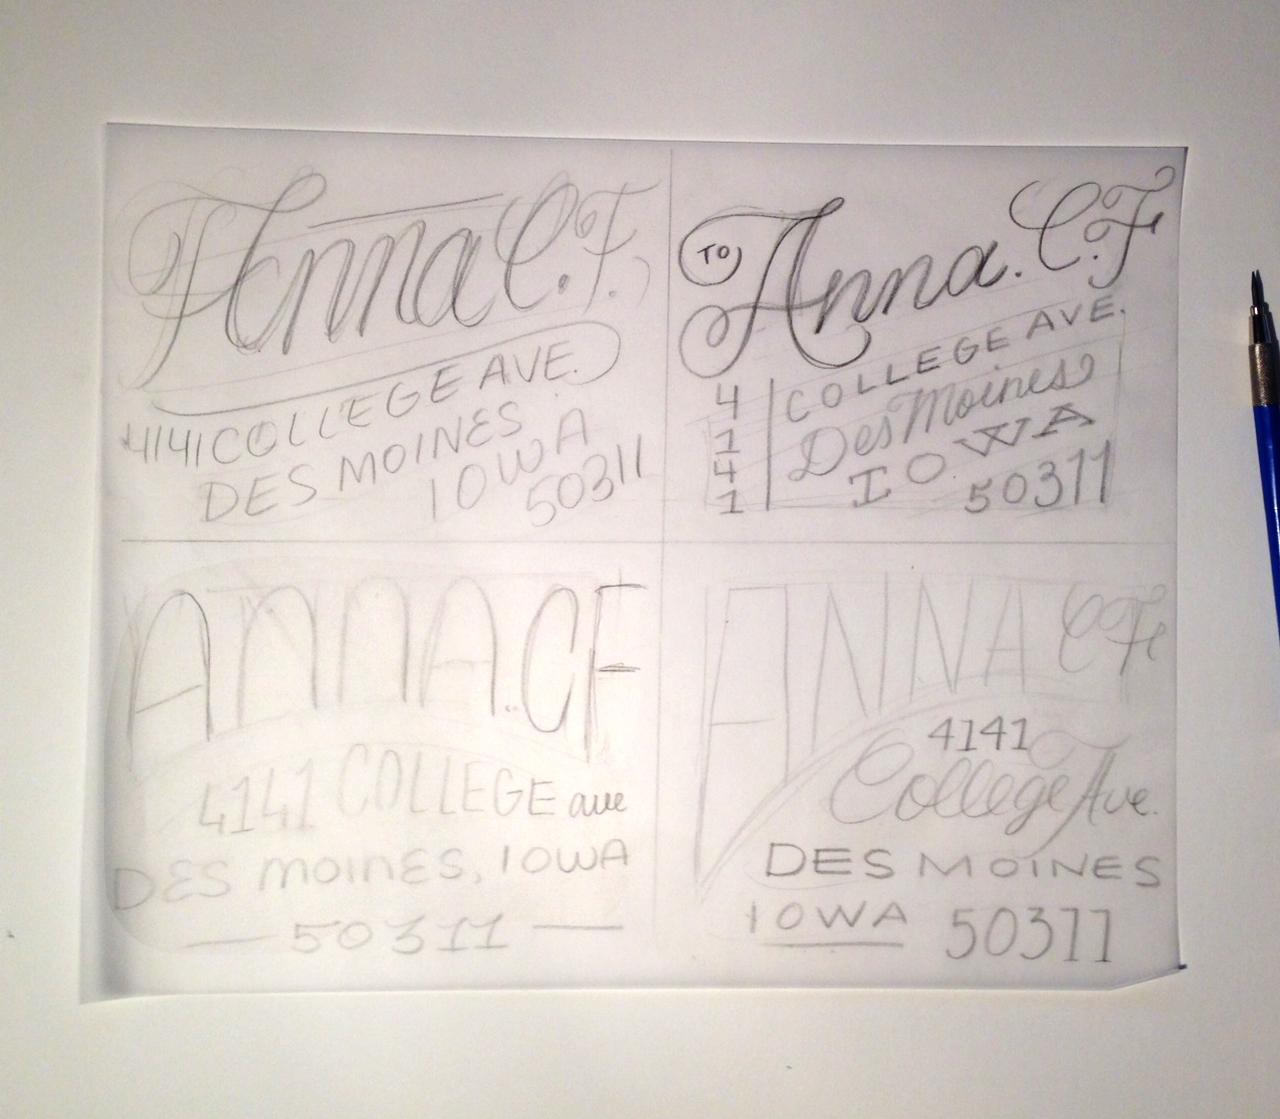 Anna C.F.
4141 COLLEGE AVE.
DES MOINES
IOWA
50311
TO Anna. C.F
4141 COLLEGE AVE.
Des Moines
IOWA
50311
ANNA..CF
4141 COLLEGE ave
DES MOINES, IOWA
50311
ANNA CF
4141
College Ave.
DES MOINES
IOWA 50311